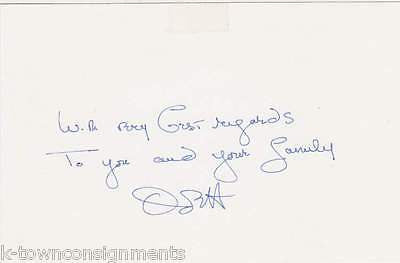 With very Best regards
To you and your family
k-townconsignments